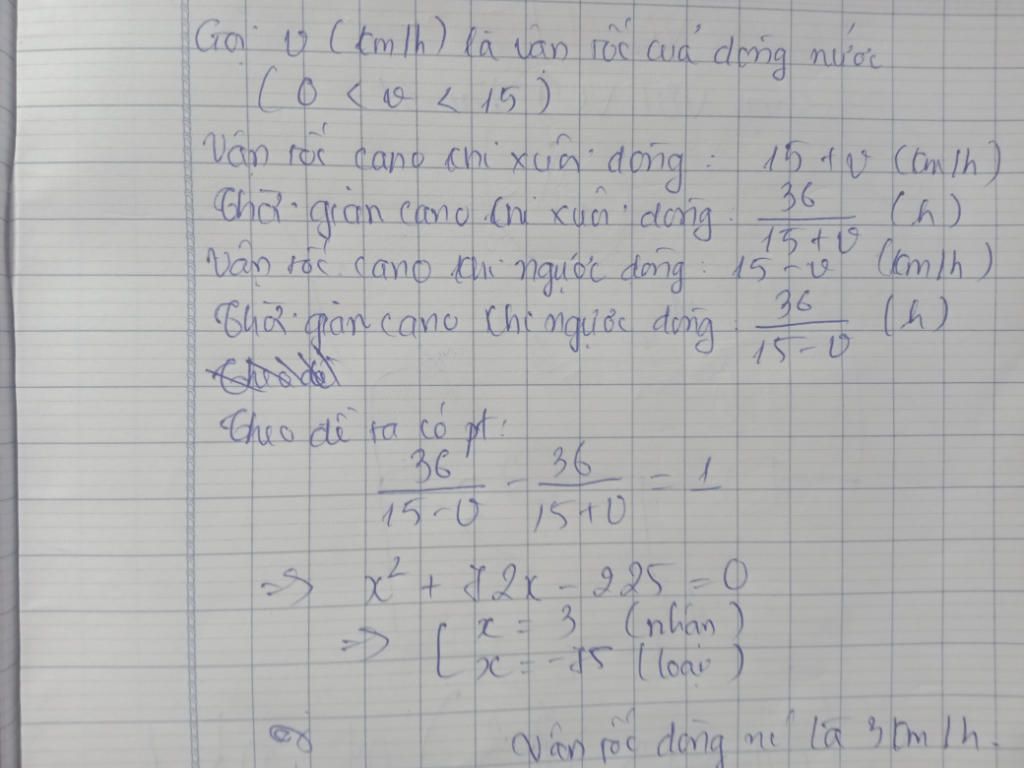 Gọi v (km/h) là vận tốc của dòng nước
( 0 < v < 15 )
Vận tốc cano khi xuôi dòng : 15 + v (km/h)
Thời gian cano khi xuôi dòng : 36/(15+v) (h)
Vận tốc cano khi ngược dòng : 15 - v (km/h)
Thời gian cano khi ngược dòng 36/(15-v) (h)
Theo đề ra có pt :
36/(15-v) - 36/(15+v) = 1
=> x² + 72x - 225 = 0
=> [ x = 3 (nhận)
x = -75 (loại)
Vận tốc dòng nc là 3km/h.